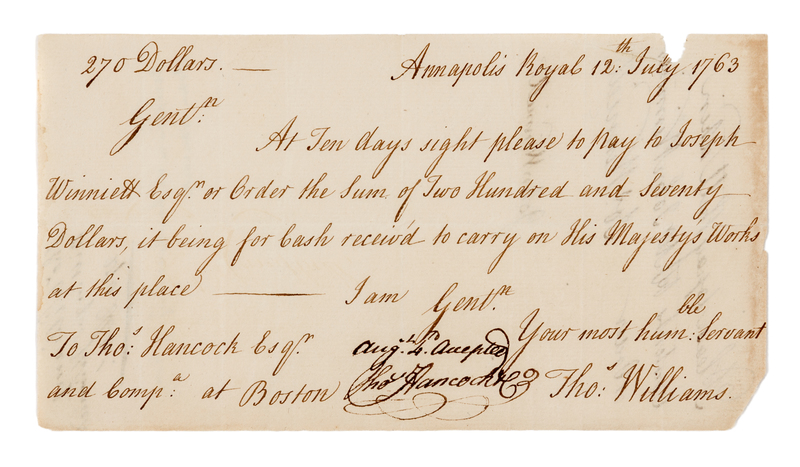 270 Dollars. — Annapolis Royal 12:th July 1763
Gent:n
At Ten days sight please to pay to Joseph
Winniett Esqr or Order the Sum of Two Hundred and Seventy
Dollars, it being for Cash receiv'd to carry on His Majesty's Works
at this place — I am Gent:n
Your most hum:ble Servant
To Tho:s Hancock Esq:r
and Comp:a at Boston
Augt 4. Accepted
Thos Hancock & Co
Tho:s Williams.